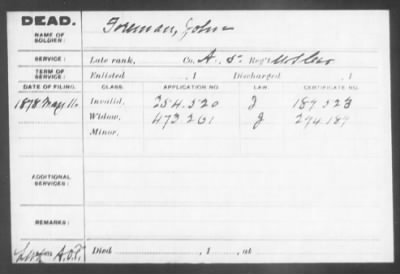 DEAD.
NAME OF SOLDIER: Foreman, John
SERVICE: Late rank, Co. A. 5" Reg't
TERM OF SERVICE: Enlisted , 1 Discharged , 1
DATE OF FILING. CLASS. APPLICATION NO. LAW. CERTIFICATE NO.
1878 May 11. Invalid, 254.520 J 189.323
Widow, 473.261 J 294.187
Minor,
ADDITIONAL SERVICES:
REMARKS:
Died , 1 , at